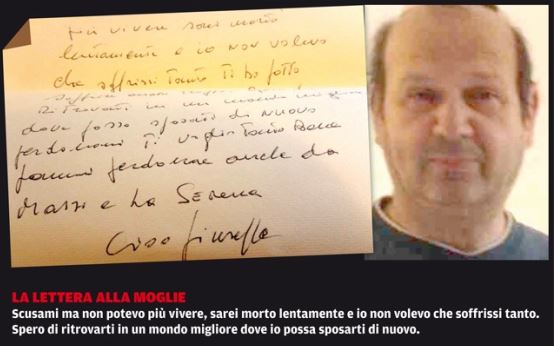 più vivere sarei morto
lentamente e io non volevo
che soffrissi tanto Ti ho fatto
ritrovarti in un mondo
dove posso sposarti di nuovo
perdonami Ti voglio Tanto Bene
fammi perdonare anche da
e la Serena
Ciao
LA LETTERA ALLA MOGLIE
Scusami ma non potevo più vivere, sarei morto lentamente e io non volevo che soffrissi tanto.
Spero di ritrovarti in un mondo migliore dove io possa sposarti di nuovo.